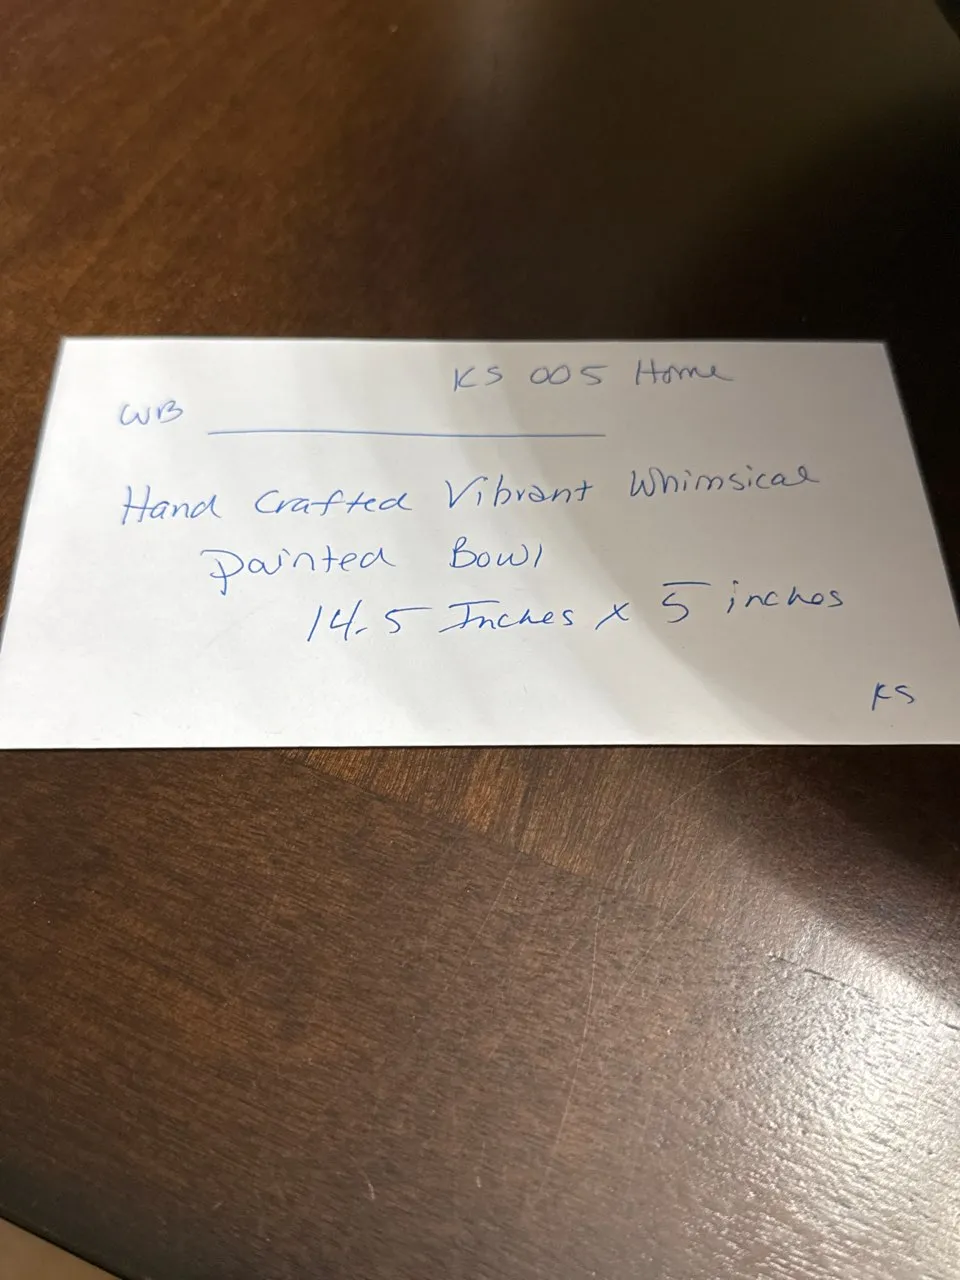 KS 005 Home
WB
Hand Crafted Vibrant Whimsical
Painted Bowl
14.5 Inches x 5 inches
KS